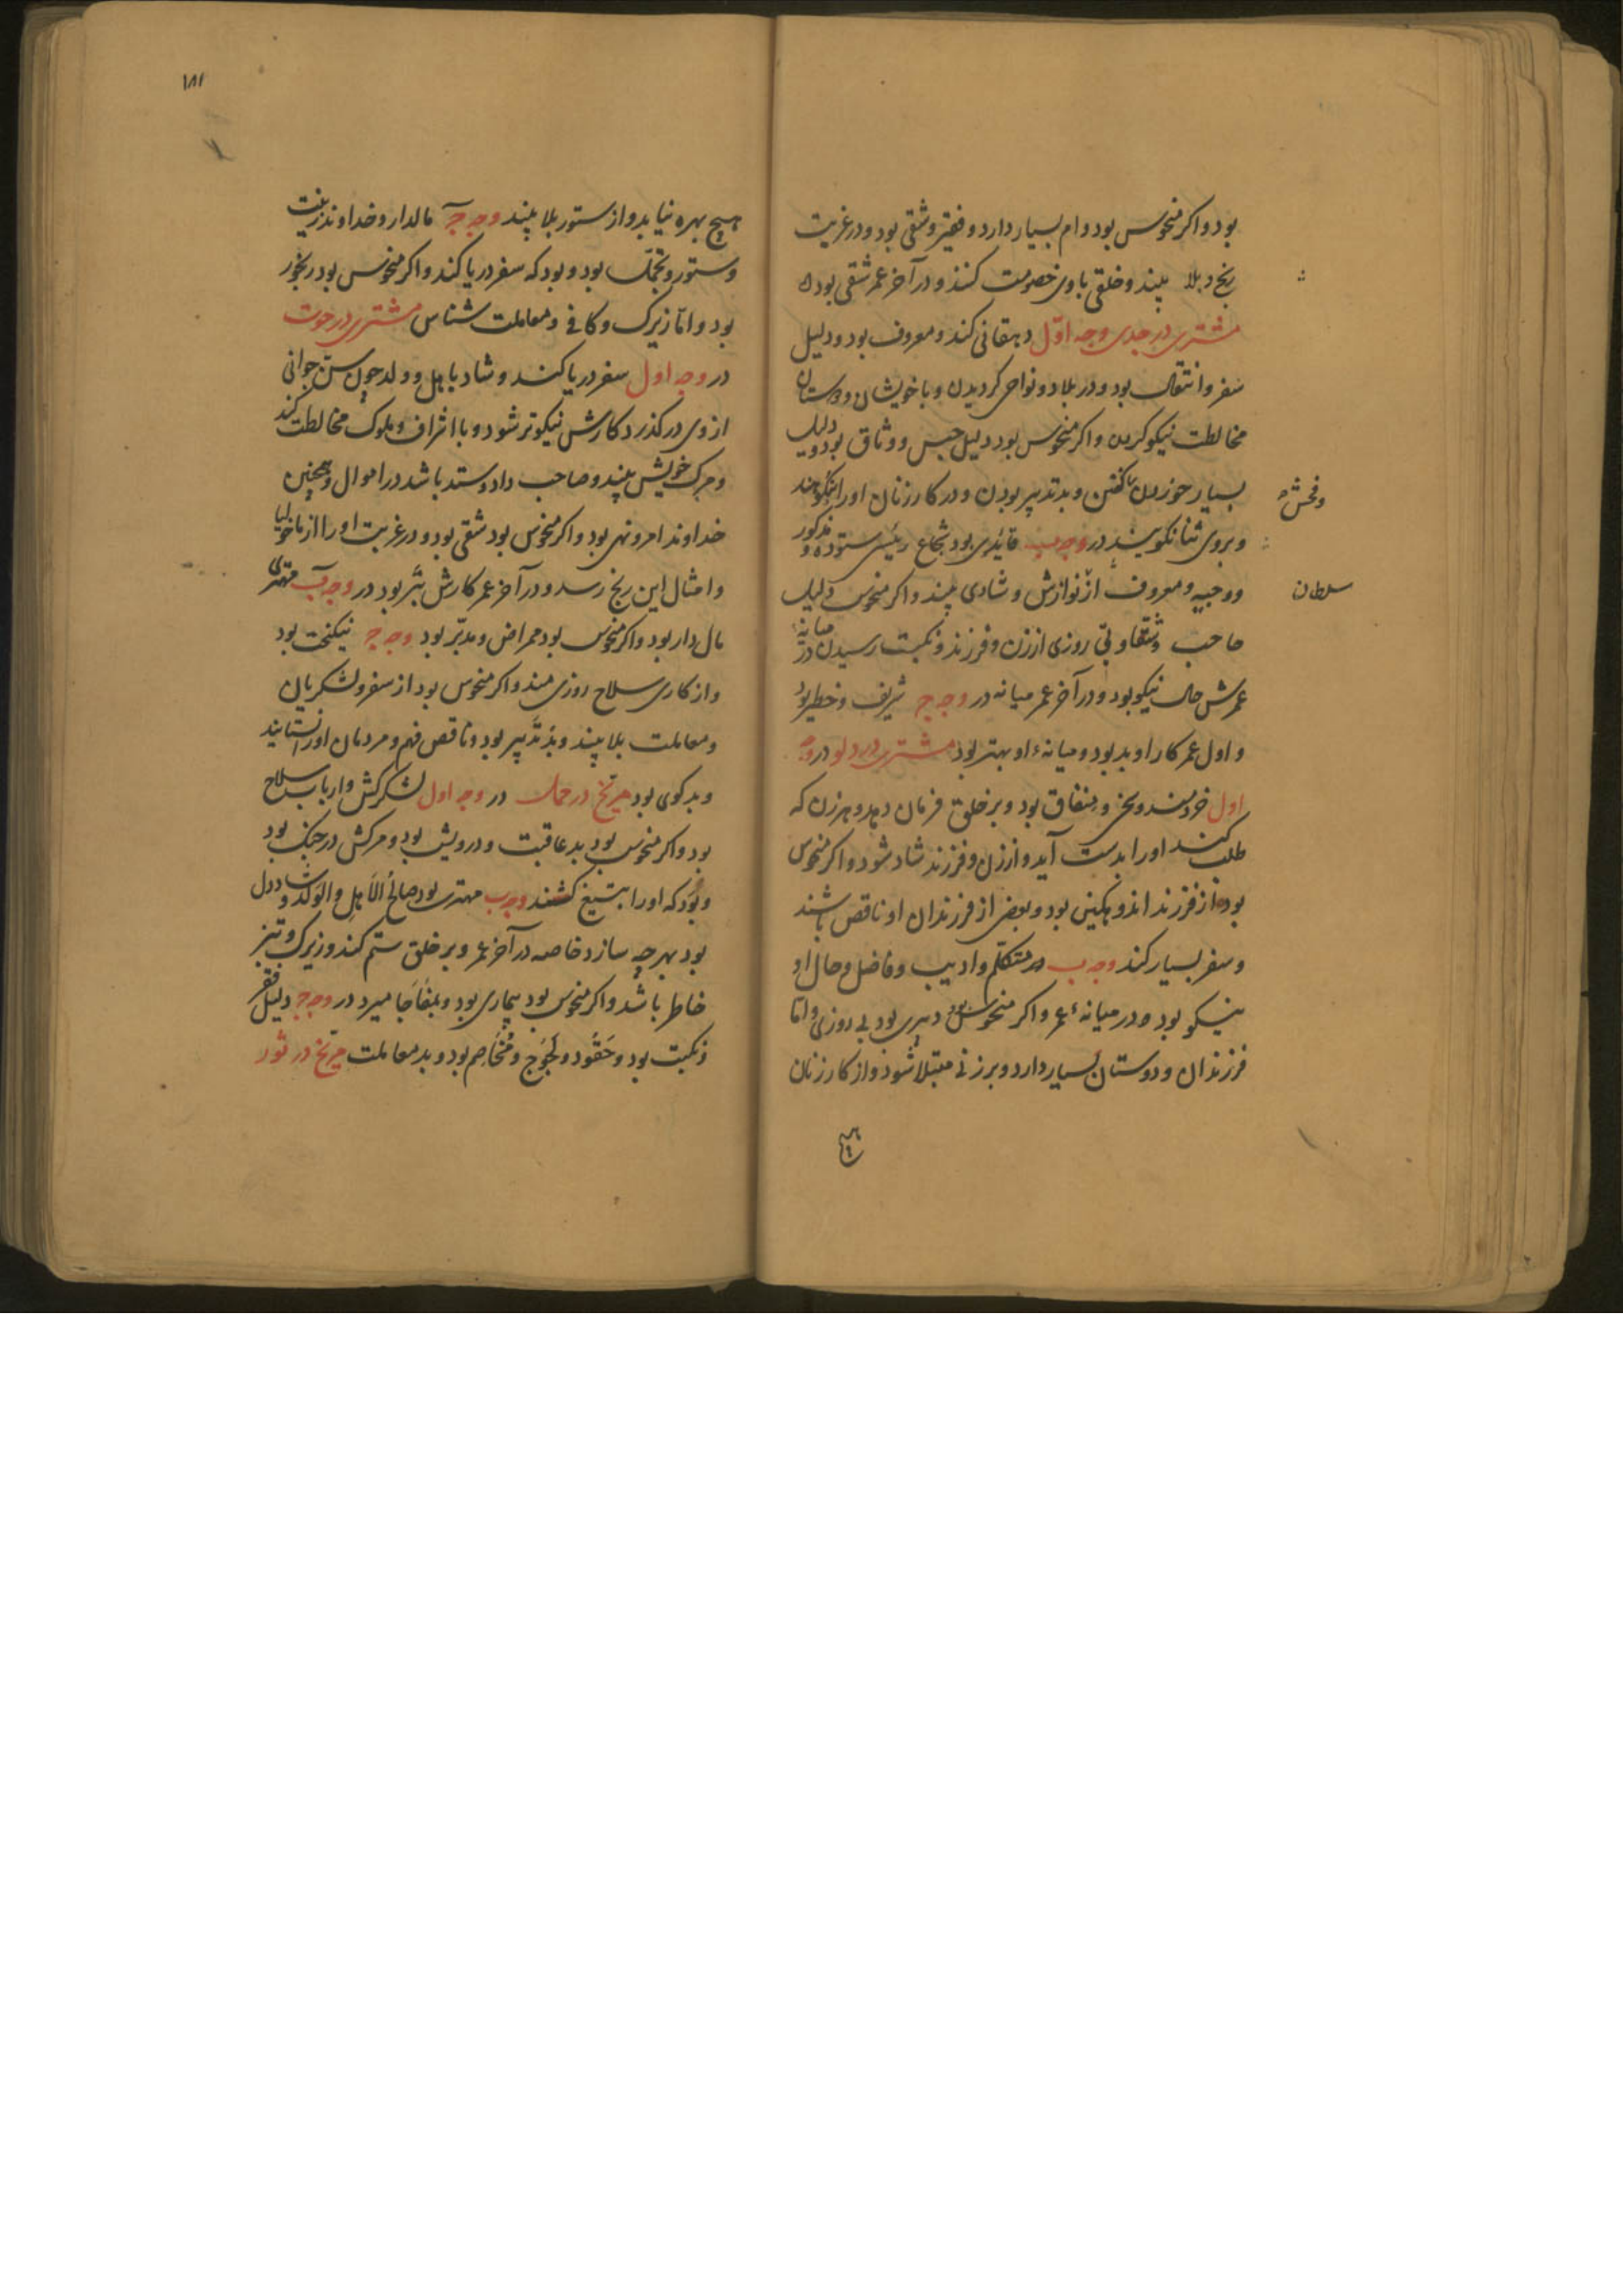 بود و اکر منحوس بود وام بسیار دارد و فقیر و شقی بود و در غربت
رنج و بلا بیند و خلقی با وی خصومت کنند و در آخر عمر شقی بود
مشتری در جدی وجه اول دهقانی کند و معروف بود و دلیل
سفر و انتقال بود و در بلاد و نواحی کردیدن و با خویشان و دوستان
مخالطت نیکو کردن و اکر منحوس بود دلیل حبس و وثاق بود و دلیل
بسیار خوردن کفتن و بد تدبیر بودن و در کار زنان او را نیکو
وفحش
و بروی ثنا نکویند در وجه ب قائدی بود شجاع رئیس ستوده و مذکور
و وجیه و معروف از نوازش و شادی بیند و اکر منحوس دلیل
سلطان
صاحب شقاوتی روزی از زن و فرزند و نکبت رسیدن در میانه
عمرش حال نیکو بود و در آخر عمر میانه در وجه ج شریف و خطیر بود
و اول عمر کار او بد بود و میانهٔ او بهتر بود مشتری در دلو در وجه
اول خردمند و سخی و بنفاق بود و بر خلق فرمان دهد و هر زن که
طلب کند او را بدست آید و از زن و فرزند شاد شود و اکر منحوس
بود از فرزند اندوهکین بود و بعضی از فرزندان او ناقص باشند
و سفر بسیار کند وجه ب در متکلم و ادیب و فاضل و حال او
نیکو بود در میانهٔ عمر و اکر منحوس بود دهری بود بی روزی و اما
فرزندان و دوستان بسیار دارد و بر زنی مبتلا شود و از کار زنان
هیچ
۱۸۱
هیچ بهره نیابد و از ستور بلا بیند وجه ج مالدار و خداوند زینت
و ستور و تجمل بود و بود که سفر دریا کند و اکر منحوس بود رنجور
بود و اما زیرک و کافی و معاملت شناس مشتری در حوت
در وجه اول سفر دریا کند و شاد باهل و ولد چون سن جوانی
از وی در کذرد کارش نیکوتر شود و با اشراف و ملوک مخالطت کند
و مرک خویش بیند و صاحب داد و ستد باشد در اموال و همچنین
خداوند امر و نهی بود و اکر منحوس بود شقی بود و در غربت او را از ماخولیا
و امثال این رنج رسد و در آخر عمر کارش بتر بود در وجه ب مهتری
مال دار بود و اکر منحوس بود ممراض و مدبر بود وجه ج نیکبخت بود
و از کاری سلاح روزی مند و اکر منحوس بود از سفر و لشکریان
و معاملت بلا بیند و بد تدبیر بود و ناقص فهم و مردمان او را نستایند
و بد کوی بود مریخ در حمل در وجه اول لشکرکش و ارباب سلاح
بود و اکر منحوس بود بد عاقبت و درویش بود و مرکش در جنک بود
و بود که او را بتیغ کشند وجه ب مهتری بود صالح الاهل والولد و شاد دل
بود بهرچه سازد خاصه در آخر عمر و بر خلق ستم کند و زیرک و تیز
خاطر باشد و اکر منحوس بود بیماری بود و بمفاجا میرد در وجه ج دلیل فقر
و نکبت بود و حقود و لجوج و مخاصم بود و بد معاملت مریخ در ثور